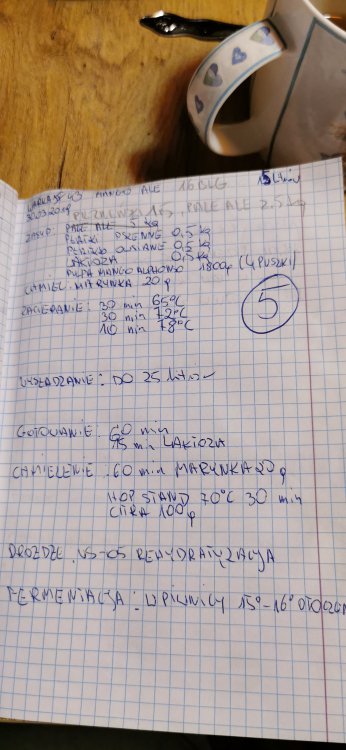 WARKA 53 MANGO ALE 16 BLG 15 litrów
30.03.2019
PILZNEŃSKI 1,5, PALE ALE 2.5 kg
ZASYP: PALE ALE 5 kg
PŁATKI PSZENNE 0,5 kg
PŁATKI OWSIANE 0,5 kg
LAKTOZA 0,5 kg
PULPA MANGO ALPHONSO 1800g (4 PUSZKI)
CHMIEL: MARYNKA 20 g
ZACIERANIE: 30 min 65°C
30 min 72°C
10 min 78°C
5
WYSŁADZANIE: DO 25 litrów
GOTOWANIE: 60 min
15 min LAKTOZA
CHMIELENIE: 60 min MARYNKA 20 g
HOP STAND 70°C 30 min
CITRA 100g
DROŻDŻE: US-05 REHYDRATYZACJA
FERMENTACJA: W PIWNICY 15°-16°